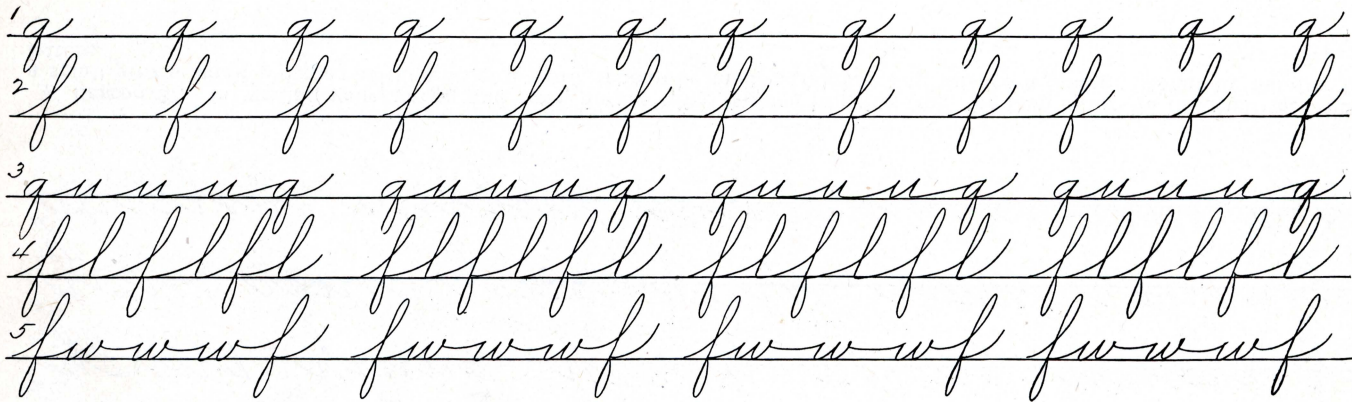 1 q q q q q q q q q q q q
2 f f f f f f f f f f f f
3 quuuq quuuq quuuq quuuq
4 flflfl flflfl flflfl flflfl
5 fwwwf fwwwf fwwwf fwwwf